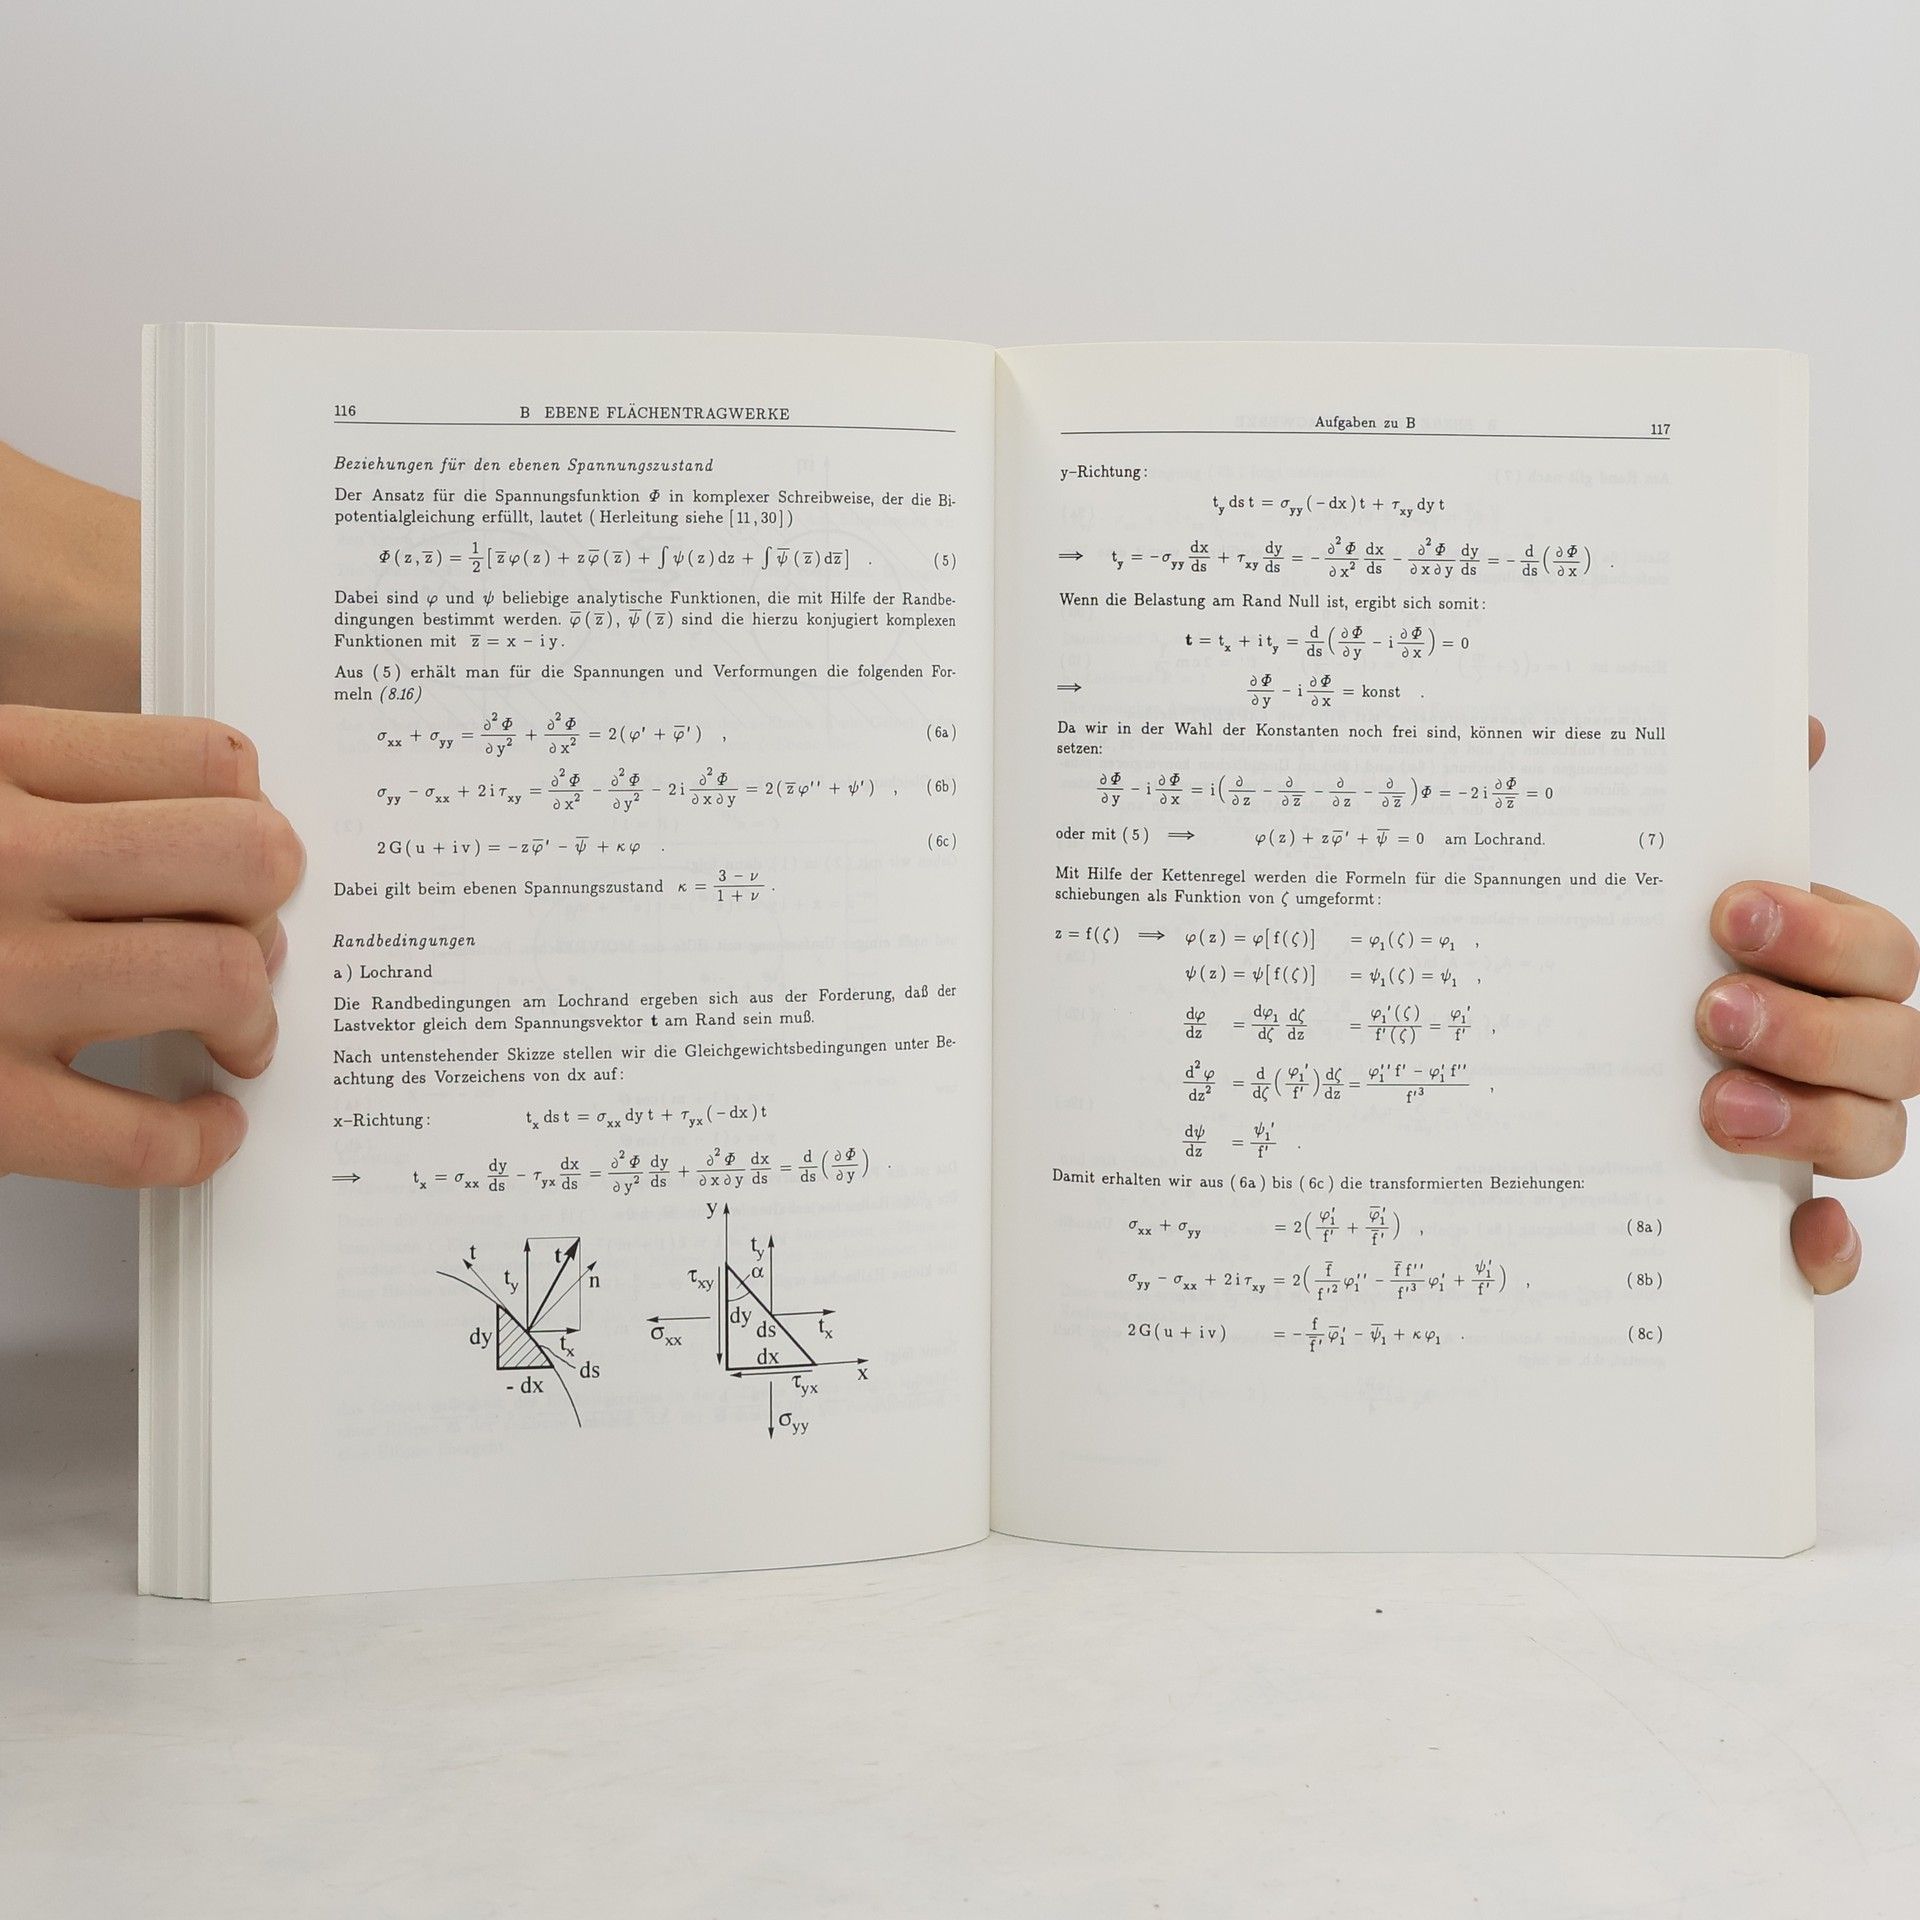 116 B EBENE FLÄCHENTRAGWERKE
Beziehungen für den ebenen Spannungszustand
Der Ansatz für die Spannungsfunktion Φ in komplexer Schreibweise, der die Bi-
potentialgleichung erfüllt, lautet ( Herleitung siehe [ 11 , 30 ] )
Φ ( z , z̅ ) = 1/2 [ z̅ φ ( z ) + z φ̅ ( z̅ ) + ∫ ψ ( z ) dz + ∫ ψ̅ ( z̅ ) dz̅ ] . ( 5 )
Dabei sind φ und ψ beliebige analytische Funktionen, die mit Hilfe der Randbe-
dingungen bestimmt werden. φ̅ ( z̅ ) , ψ̅ ( z̅ ) sind die hierzu konjugiert komplexen
Funktionen mit z̅ = x − i y .
Aus ( 5 ) erhält man für die Spannungen und Verformungen die folgenden For-
meln (8.16)
σ_xx + σ_yy = ∂²Φ/∂y² + ∂²Φ/∂x² = 2 ( φ' + φ̅' ) , ( 6a )
σ_yy − σ_xx + 2 i τ_xy = ∂²Φ/∂x² − ∂²Φ/∂y² − 2 i ∂²Φ/∂x∂y = 2 ( z̅ φ'' + ψ' ) , ( 6b )
2 G ( u + iv ) = − z φ̅' − ψ̅ + κ φ . ( 6c )
Dabei gilt beim ebenen Spannungszustand κ = (3 − ν)/(1 + ν) .
Randbedingungen
a ) Lochrand
Die Randbedingungen am Lochrand ergeben sich aus der Forderung, daß der
Lastvektor gleich dem Spannungsvektor t am Rand sein muß.
Nach untenstehender Skizze stellen wir die Gleichgewichtsbedingungen unter Be-
achtung des Vorzeichens von dx auf:
x-Richtung: t_x ds t = σ_xx dy t + τ_yx ( − dx ) t
⟹ t_x = σ_xx dy/ds − τ_yx dx/ds = ∂²Φ/∂y² dy/ds + ∂²Φ/∂x∂y dx/ds = d/ds ( ∂Φ/∂y ) .
t t_y t n
dy t_x ds
- dx
y t_y
τ_xy α
dy ds
σ_xx t_x
dx x
τ_yx
σ_yy
Aufgaben zu B 117
y-Richtung:
t_y ds t = σ_yy ( − dx ) t + τ_xy dy t
⟹ t_y = − σ_yy dx/ds + τ_xy dy/ds = − ∂²Φ/∂x² dx/ds − ∂²Φ/∂x∂y dy/ds = − d/ds ( ∂Φ/∂x ) .
Wenn die Belastung am Rand Null ist, ergibt sich somit:
t = t_x + i t_y = d/ds ( ∂Φ/∂y − i ∂Φ/∂x ) = 0
⟹ ∂Φ/∂y − i ∂Φ/∂x = konst .
Da wir in der Wahl der Konstanten noch frei sind, können wir diese zu Null
setzen:
∂Φ/∂y − i ∂Φ/∂x = i ( ∂/∂z − ∂/∂z̅ − ∂/∂z − ∂/∂z̅ ) Φ = − 2 i ∂Φ/∂z̅ = 0
oder mit ( 5 ) ⟹ φ ( z ) + z φ̅' + ψ̅ = 0 am Lochrand. ( 7 )
Mit Hilfe der Kettenregel werden die Formeln für die Spannungen und die Ver-
schiebungen als Funktion von ζ umgeformt:
z = f(ζ) ⟹ φ ( z ) = φ [ f(ζ) ] = φ₁(ζ) = φ₁ ,
ψ ( z ) = ψ [ f(ζ) ] = ψ₁(ζ) = ψ₁ ,
dφ/dz = dφ₁/dζ dζ/dz = φ₁'(ζ)/f'(ζ) = φ₁'/f' ,
d²φ/dz² = d/dζ ( φ₁'/f' ) dζ/dz = (φ₁'' f' − φ₁' f'')/f'³ ,
dψ/dz = ψ₁'/f' .
Damit erhalten wir aus ( 6a ) bis ( 6c ) die transformierten Beziehungen:
σ_xx + σ_yy = 2 ( φ₁'/f' + φ̅₁'/f̅' ) , ( 8a )
σ_yy − σ_xx + 2 i τ_xy = 2 ( f̅/f'² φ₁'' − f̅ f''/f'³ φ₁' + ψ₁'/f' ) , ( 8b )
2 G ( u + iv ) = − f/f̅' φ̅₁' − ψ̅₁ + κ φ₁ . ( 8c )